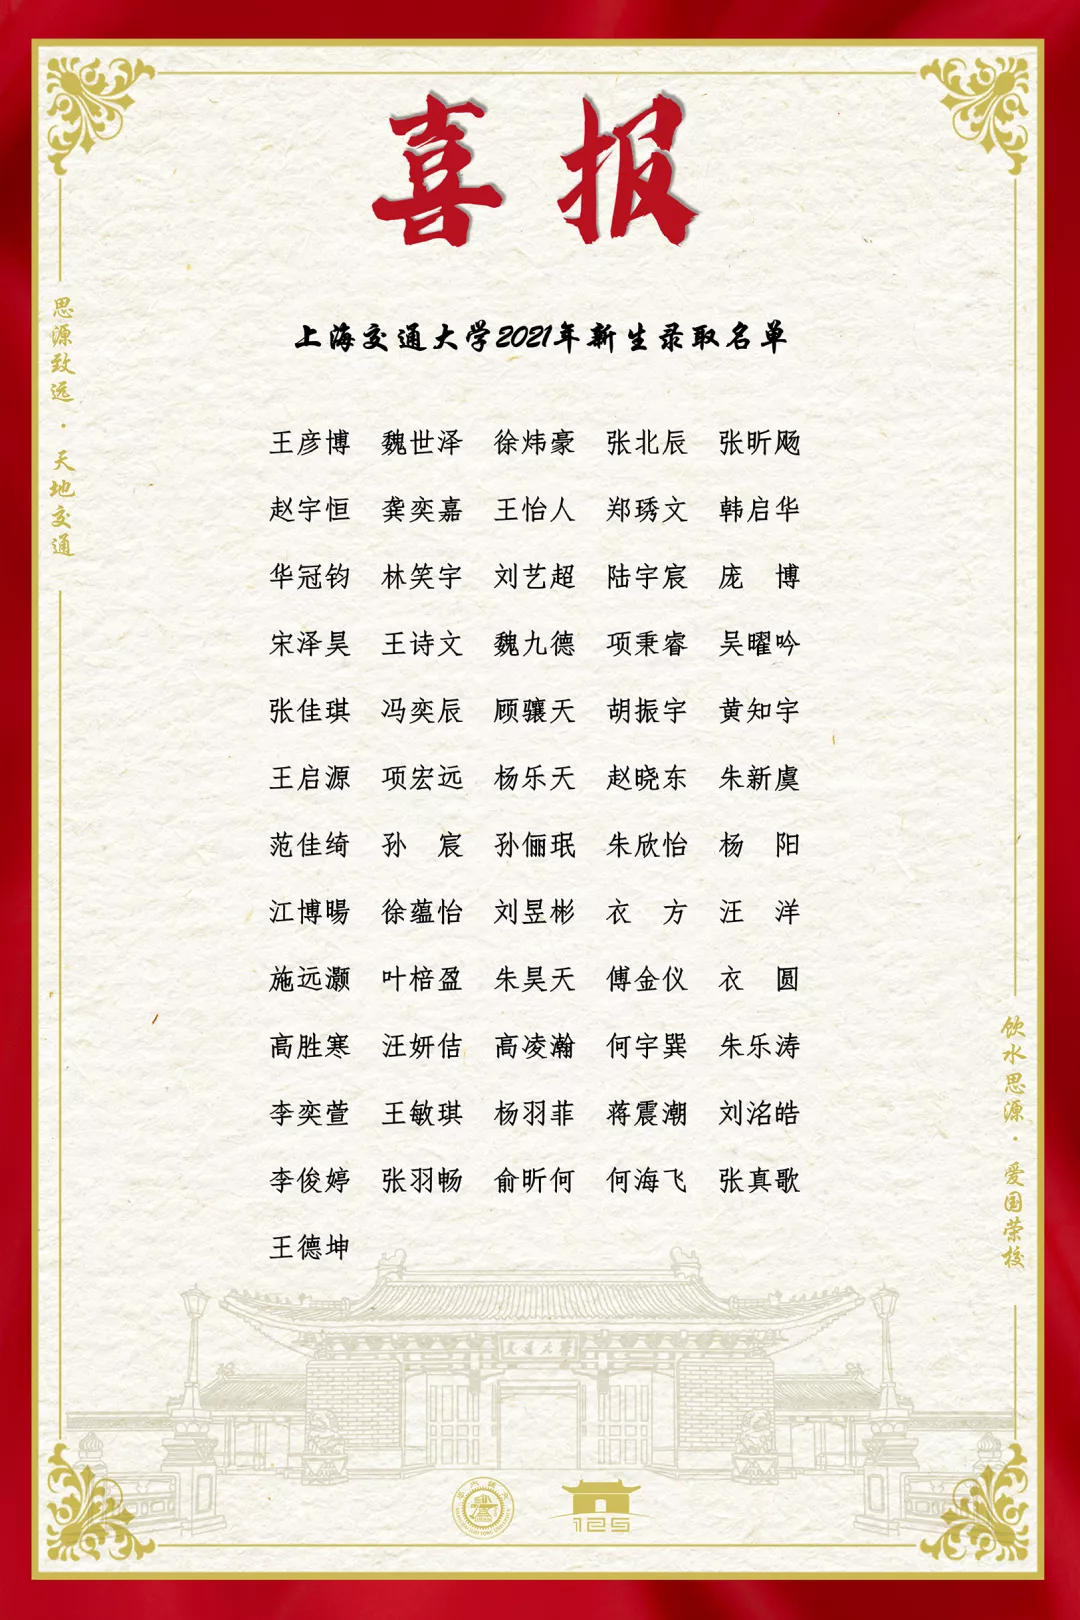 喜报
思源致远·天地交通
上海交通大学2021年新生录取名单
王彦博 魏世泽 徐炜豪 张北辰 张昕飏
赵宇恒 龚奕嘉 王怡人 郑琇文 韩启华
华冠钧 林笑宇 刘艺超 陆宇宸 庞 博
宋泽昊 王诗文 魏九德 项秉睿 吴曜吟
张佳琪 冯奕辰 顾骧天 胡振宇 黄知宇
王启源 项宏远 杨乐天 赵晓东 朱新虞
范佳绮 孙 宸 孙俪珉 朱欣怡 杨 阳
江博暘 徐蕴怡 刘昱彬 衣 方 汪 洋
施远灏 叶棓盈 朱昊天 傅金仪 衣 圆
高胜寒 汪妍佶 高凌瀚 何宇巽 朱乐涛
李奕萱 王敏琪 杨羽菲 蒋震潮 刘洺皓
李俊婷 张羽畅 俞昕何 何海飞 张真歌
王德坤
饮水思源·爱国荣校
交通大学
125